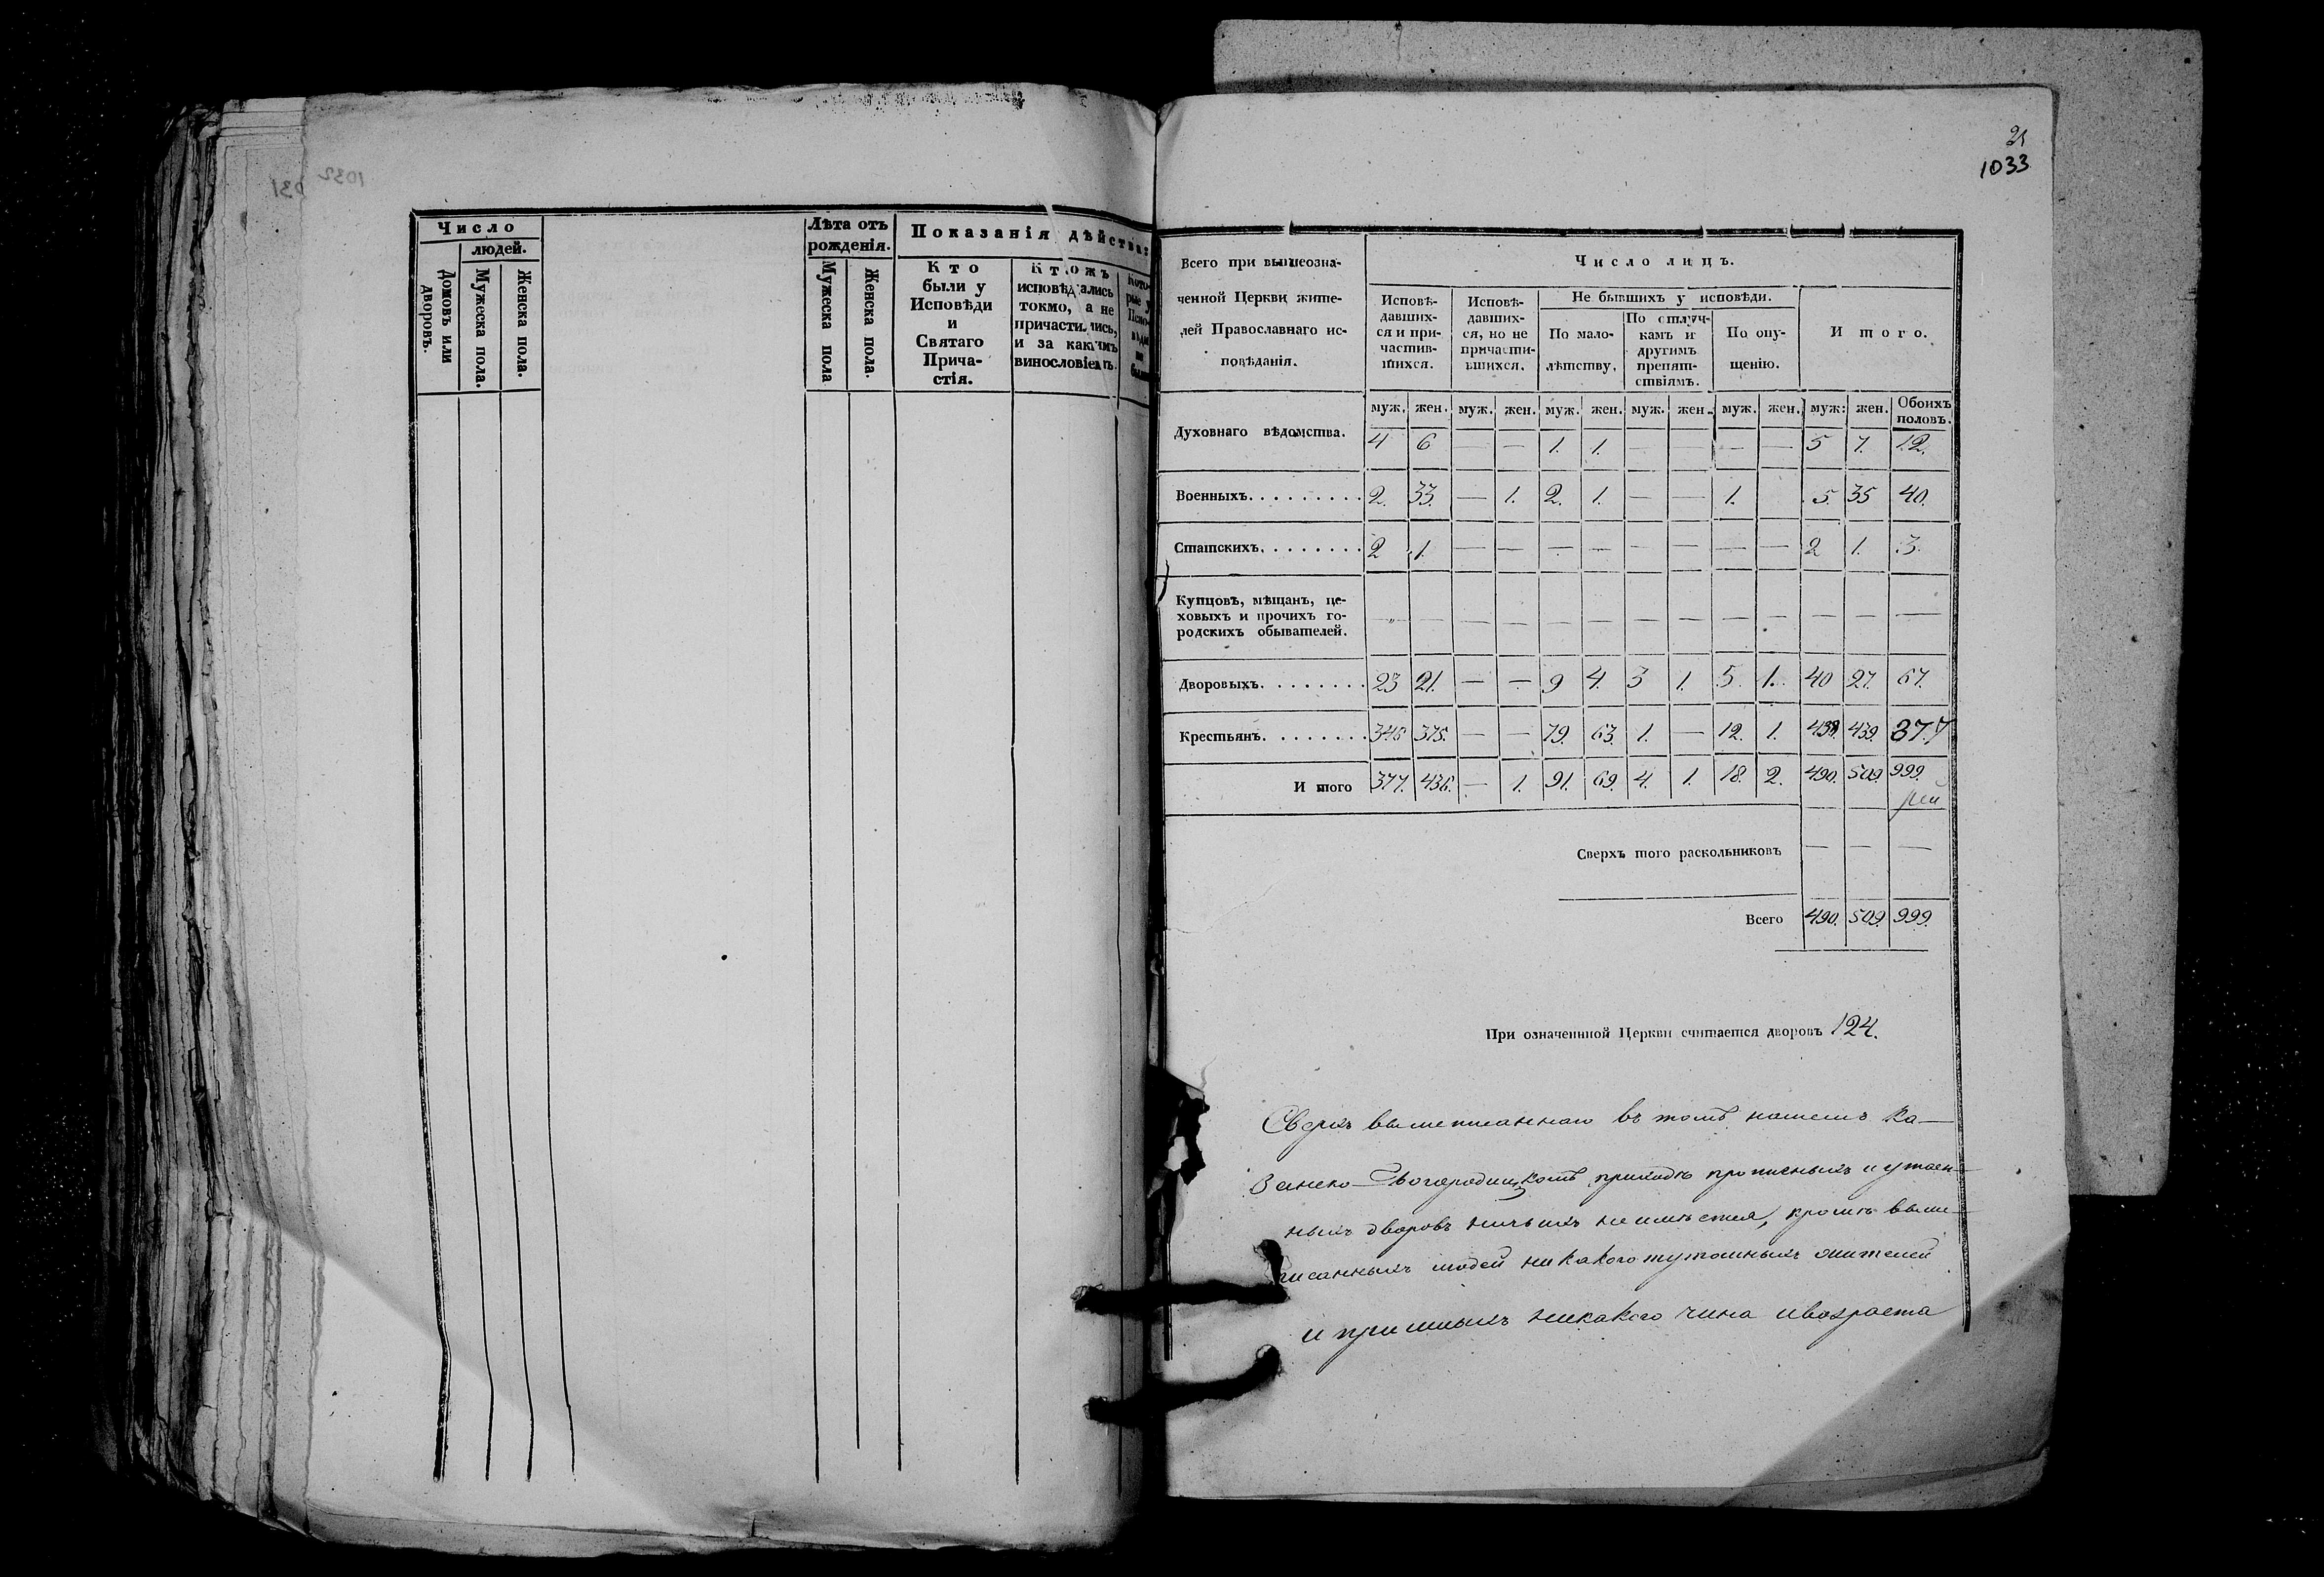 1032
031
Число
людей.
Домовъ или дворовъ.
Мужеска пола.
Женска пола.
Лѣта отъ
рожденія.
Мужеска пола
Женска пола.
Показанія дѣйстват
Кто
были у
Исповѣди
и
Святаго
Прича-
стія.
Ктожъ
исповѣдались
токмо, а не
причастились,
и за какимъ
винословіемъ.
Кото-
рые у
Испо-
вѣди
не
были
21
1033
Всего при вышеозна-
ченной Церкви жите-
лей Православнаго ис-
повѣданія.
Число лицъ.
Исповѣ-
давших-
ся и при-
частив-
шихся.
Исповѣ-
давших-
ся, но не
причасти-
вшихся.
Не бывшихъ у исповѣди.
По мало-
лѣтству.
По отлуч-
камъ и
другимъ
препят-
ствіямъ.
По опу-
щенію.
Итого.
муж. жен. муж. жен. муж. жен. муж. жен. муж. жен. муж: жен. Обоихъ
половъ.
Духовнаго вѣдомства. 4 6 — — 1. 1. — — — — 5 7. 12.
Военныхъ. . . . . . . . . 2. 33. — 1. 2. 1. — — 1. 5. 35 40.
Статскихъ. . . . . . . . 2 1. — — — — — — — — 2 1. 3.
Купцовъ, мѣщанъ, це-
ховыхъ и прочихъ го-
родскихъ обывателей. — — — — — — — — — — — — —
Дворовыхъ. . . . . . . . 23 21. — — 9 4. 3 1. 5. 1. 40 27. 67.
Крестьянъ. . . . . . . . 346 375. — — 79. 63. 1. — 12. 1. 438. 439. 877
И того 377. 436. — 1. 91. 69. 4. 1. 18. 2. 490. 509. 999.
Сверхъ того раскольниковъ — — —
Всего 490. 509. 999.
При означенной Церкви считается дворовъ 124.
Сверхъ вышеписаннаго въ томъ нашемъ Ка-
занско-Богородицкомъ приходѣ прописныхъ и утаен-
ныхъ дворовъ ничьихъ не имѣется, кромѣ выше-
писанныхъ людей никакого тутошныхъ жителей
и пришлыхъ никакого чина и возраста